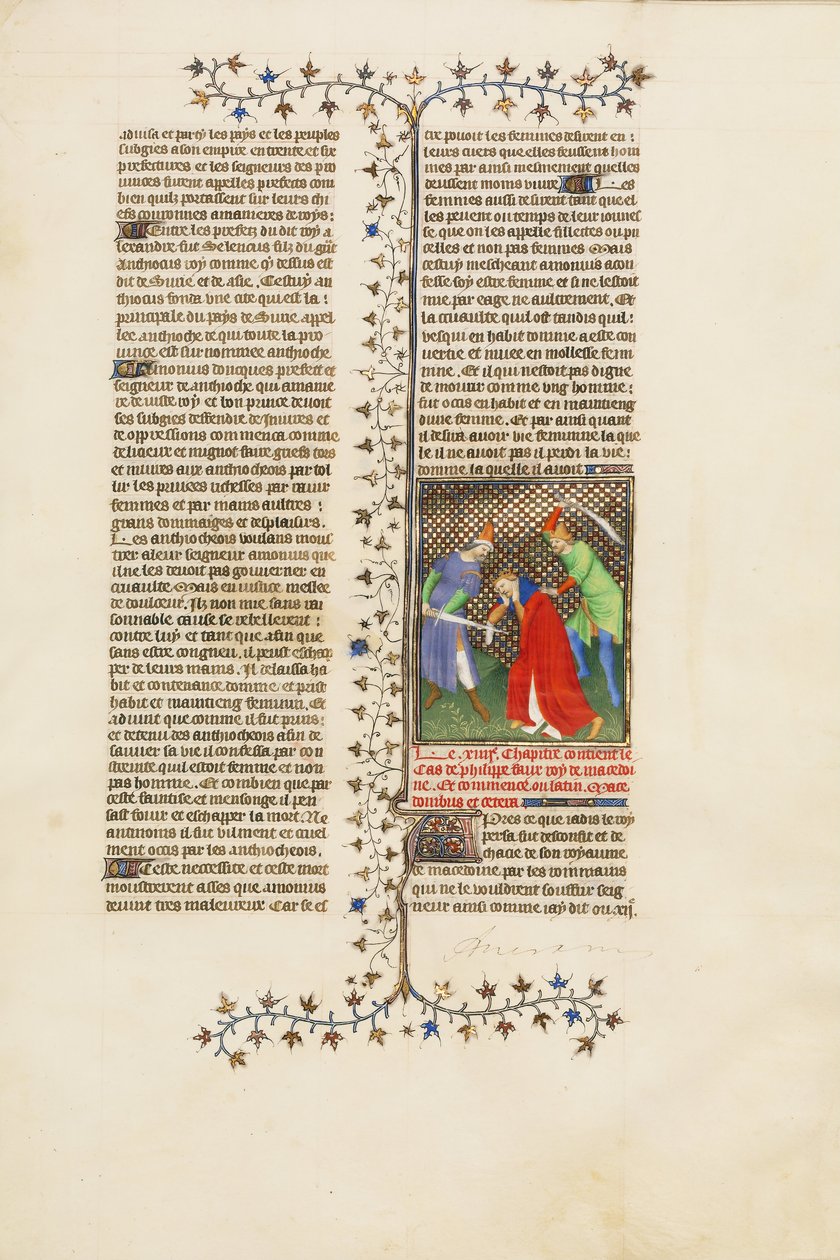 aduisa et party les pays et les peuples
subgies a son empire en trente et six
prefectures et les seigneurs des pro
uinces furent appelles prefects com
bien quilz portassent sur leurs chi
efs couronnes a manieres de roys :
Entre les prefetz du dit roy a
lexandre fut Selencus filz du g̃nt
Anthiocus roy comme cy dessus est
dit de Surie et de asie. Cestuy an
thiocus fonda vne cite qui est la :
principale du pays de Surie appel
lee anthioche de qui toute la pro
uince est surnommee anthioche
Amonius doncques prefect et
seigneur de anthioche qui a manie
re de iuste roy et bon prince deuoit
ses subgies deffendre de iniures et
de oppressions commenca comme
delicieux et mignot faire griefs tors
et iniures aux anthiocheois par tol
lir les priuees richesses par rauir
femmes et par mains aultres :
grans dommaiges et desplaisirs.
Les anthiocheois voulans mons
trer a leur seigneur amonius que
il ne les deuoit pas gouuerner en
cruaulte Mais en iustice meslee
de doulceur. Ilz non mie sans rai
sonnable cause se rebellerent :
contre luy et tant que afin que
sans estre congneu. il peust eschap
per de leurs mains. Il delaissa ha
bit et contenance domme et prist
habit et maintieng feminin. Et
aduint que comme il fut prins :
et detenu des anthiocheois afin de
sauuer sa vie il confessa par con
trainte quil estoit femme et non
pas homme. Et combien que par
ceste faintise et mensonge il pen
sast fouir et eschapper la mort Ne
antmoins il fut vilment et cruel
ment occis par les anthiocheois.
Ceste necessite et ceste mort
monstrerent asses que amonius
deuint tres maleureux Car se es
tre pouoit les femmes desirent en :
leurs cuers que elles feussent hom
mes par ainsi mesmement quelles
deussent moins viure Les
femmes aussi desirent tant que el
les peuent ou temps de leur iounes
se que on les appelle fillettes ou pu
celles et non pas femmes Mais
cestuy mescheant amonius a con
fesse soy estre femme et si ne lestoit
mie par eage ne aultrement. Et
la cruaulte quil ost tandis quil :
vesqui en habit domme a este con
uertie et muee en mollesse femi
nine. Et il qui nestoit pas digne
de mourir comme vng homme :
fut occis en habit et en maintieng
dune femme. Et par ainsi quant
il desira auoir vie feminine la que
le il ne auoit pas il perdi la vie :
domme la quelle il auoit
Le .xiiij.e Chapitre contient le
Cas de philippe faux roy de macedoi
ne. Et commence ou latin. Mace
donibus et cetera
Apres ce que iadis le roy
persa fut desconfit et de
chacie de son royaume
de macedoine par les rommains
qui ne le vouldrent souffrir seig
neur ainsi comme iay dit ou .xij.e